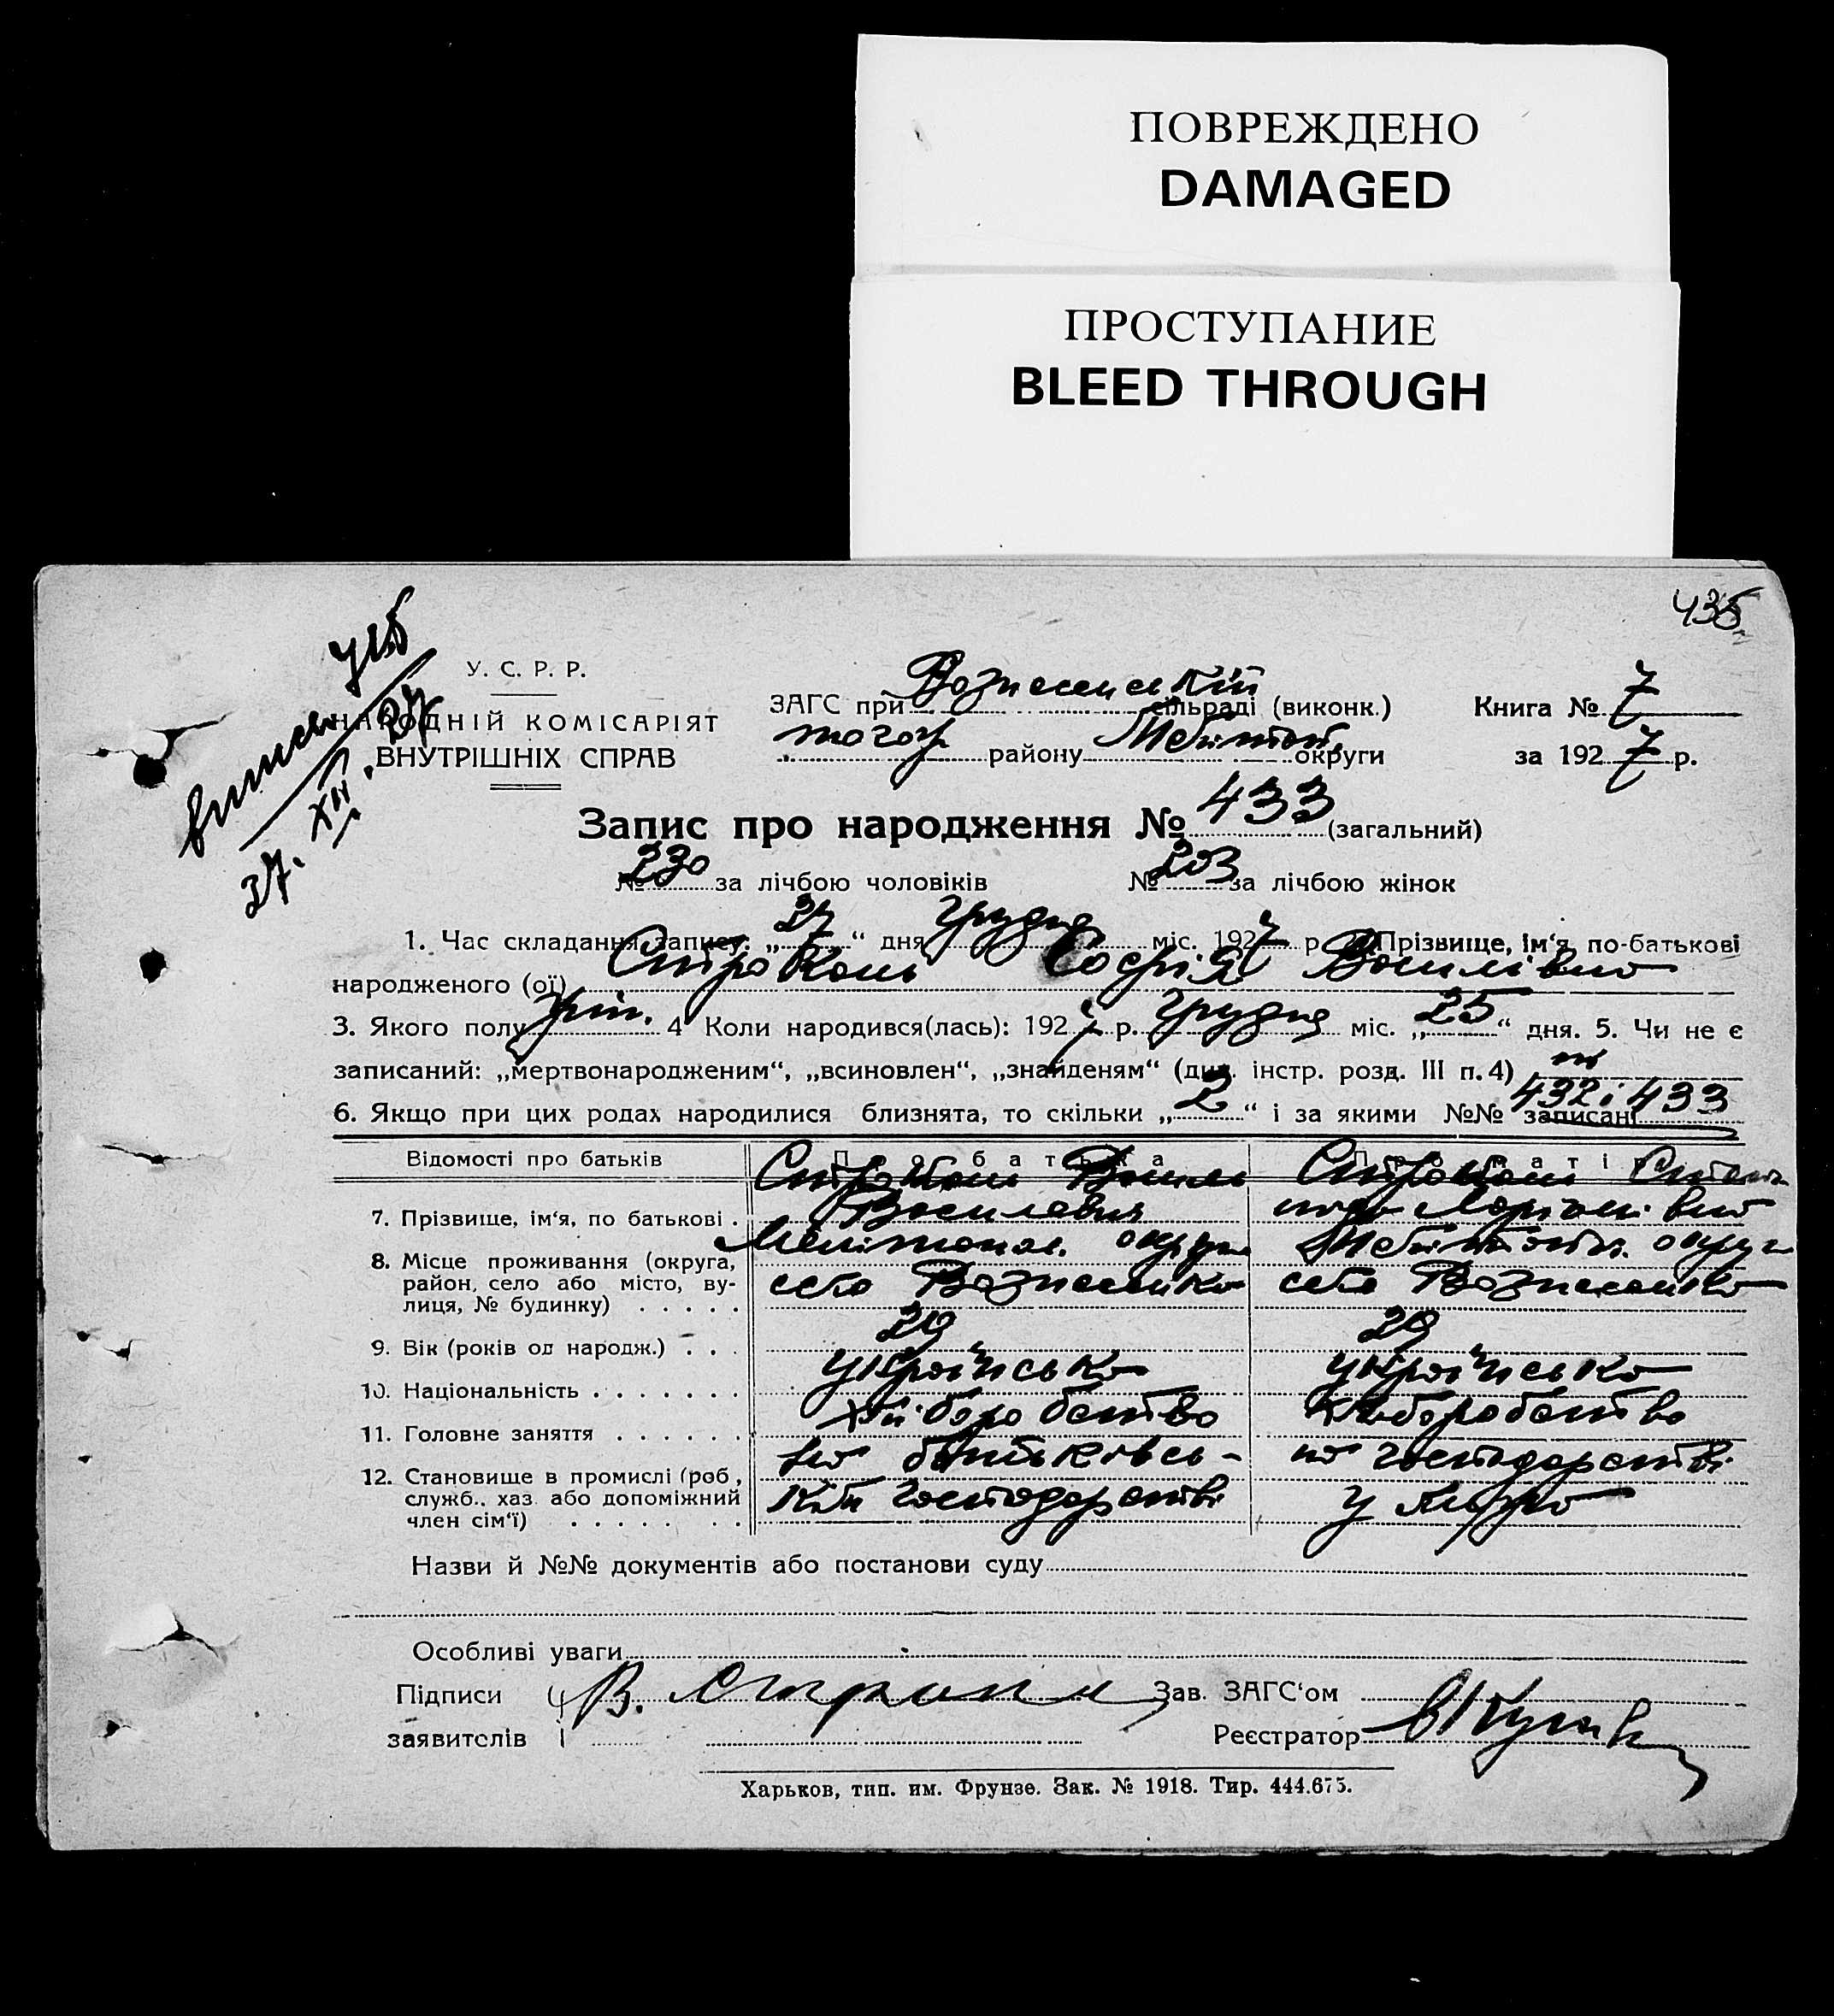 ПОВРЕЖДЕНО
DAMAGED
ПРОСТУПАНИЕ
BLEED THROUGH
У. С. Р. Р.
НАРОДНІЙ КОМІСАРІЯТ
ВНУТРІШНІХ СПРАВ
27. XII. 27
ЗАГС при Вознесенській сільраді (виконк.) Книга № 7
тогож району Мелітоп. округи за 1927 р.
Запис про народження № 433 (загальний)
№ 230 за лічбою чоловіків № 203 за лічбою жінок
1. Час складання запису: „27“ дня Грудня міс. 1927 р. Прізвище, ім‘я, по-батькові
народженого (ої) Строкань Софрія Василівна
3. Якого полу жін. 4 Коли народився(лась): 1927 р. Грудня міс. „25“ дня. 5. Чи не є
записаний: „мертвонародженим“, „всиновлен“, „знайденям“ (див. інстр. розд. III п. 4) ні
6. Якщо при цих родах народилися близнята, то скільки „2“ і за якими №№ записані 432 і 433
Відомості про батьків Про батька Про матір
7. Прізвище, ім‘я, по батькові . Строкань Василь Василевич Строкань
8. Місце проживання (округа, район, село або місто, вулиця, № будинку) . . . . . Мелітопол. округа село Вознесенка Мелітопол. округа село Вознесенка
9. Вік (років од народж.) . . . 29 29
10. Національність . . . . . . . українська українська
11. Головне заняття . . . . . . хліборобство хліборобство
12. Становище в промислі (роб., служб., хаз. або допоміжний член сім‘ї) . . . . . . . на батьківськім господарстві на господарстві у мужа
Назви й №№ документів або постанови суду
Особливі уваги
Підписи В. Строкань Зав. ЗАГС‘ом
заявителів Реєстратор
Харьков, тип. им. Фрунзе. Зак. № 1918. Тир. 444.675.